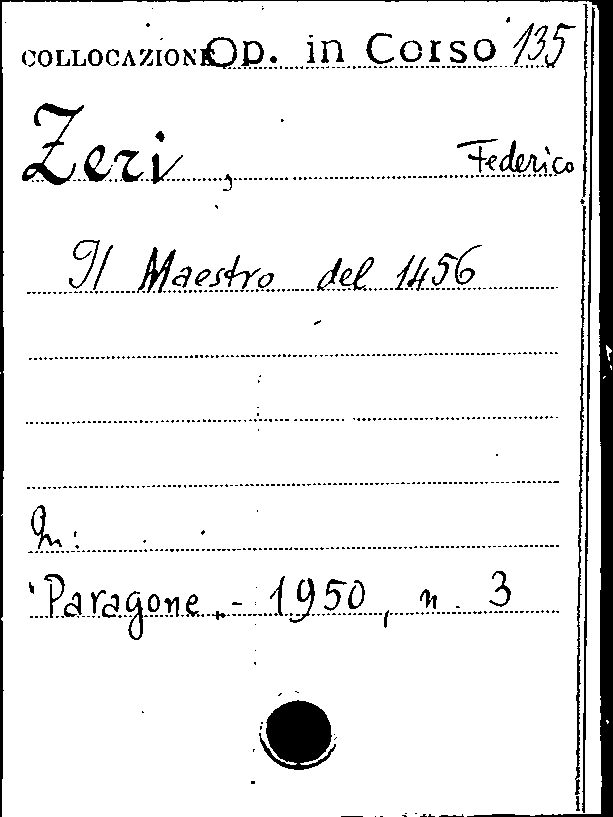 COLLOCAZIONE Op. in Corso 135
Zeri, Federico
Il Maestro del 1456
In:
"Paragone,, - 1950, n. 3